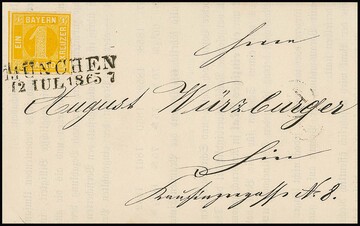 BAYERN
EIN 1 KREUZER
MÜNCHEN
12 IUL 1865 7
Herrn
August Würzburger
Hier
N. 8.